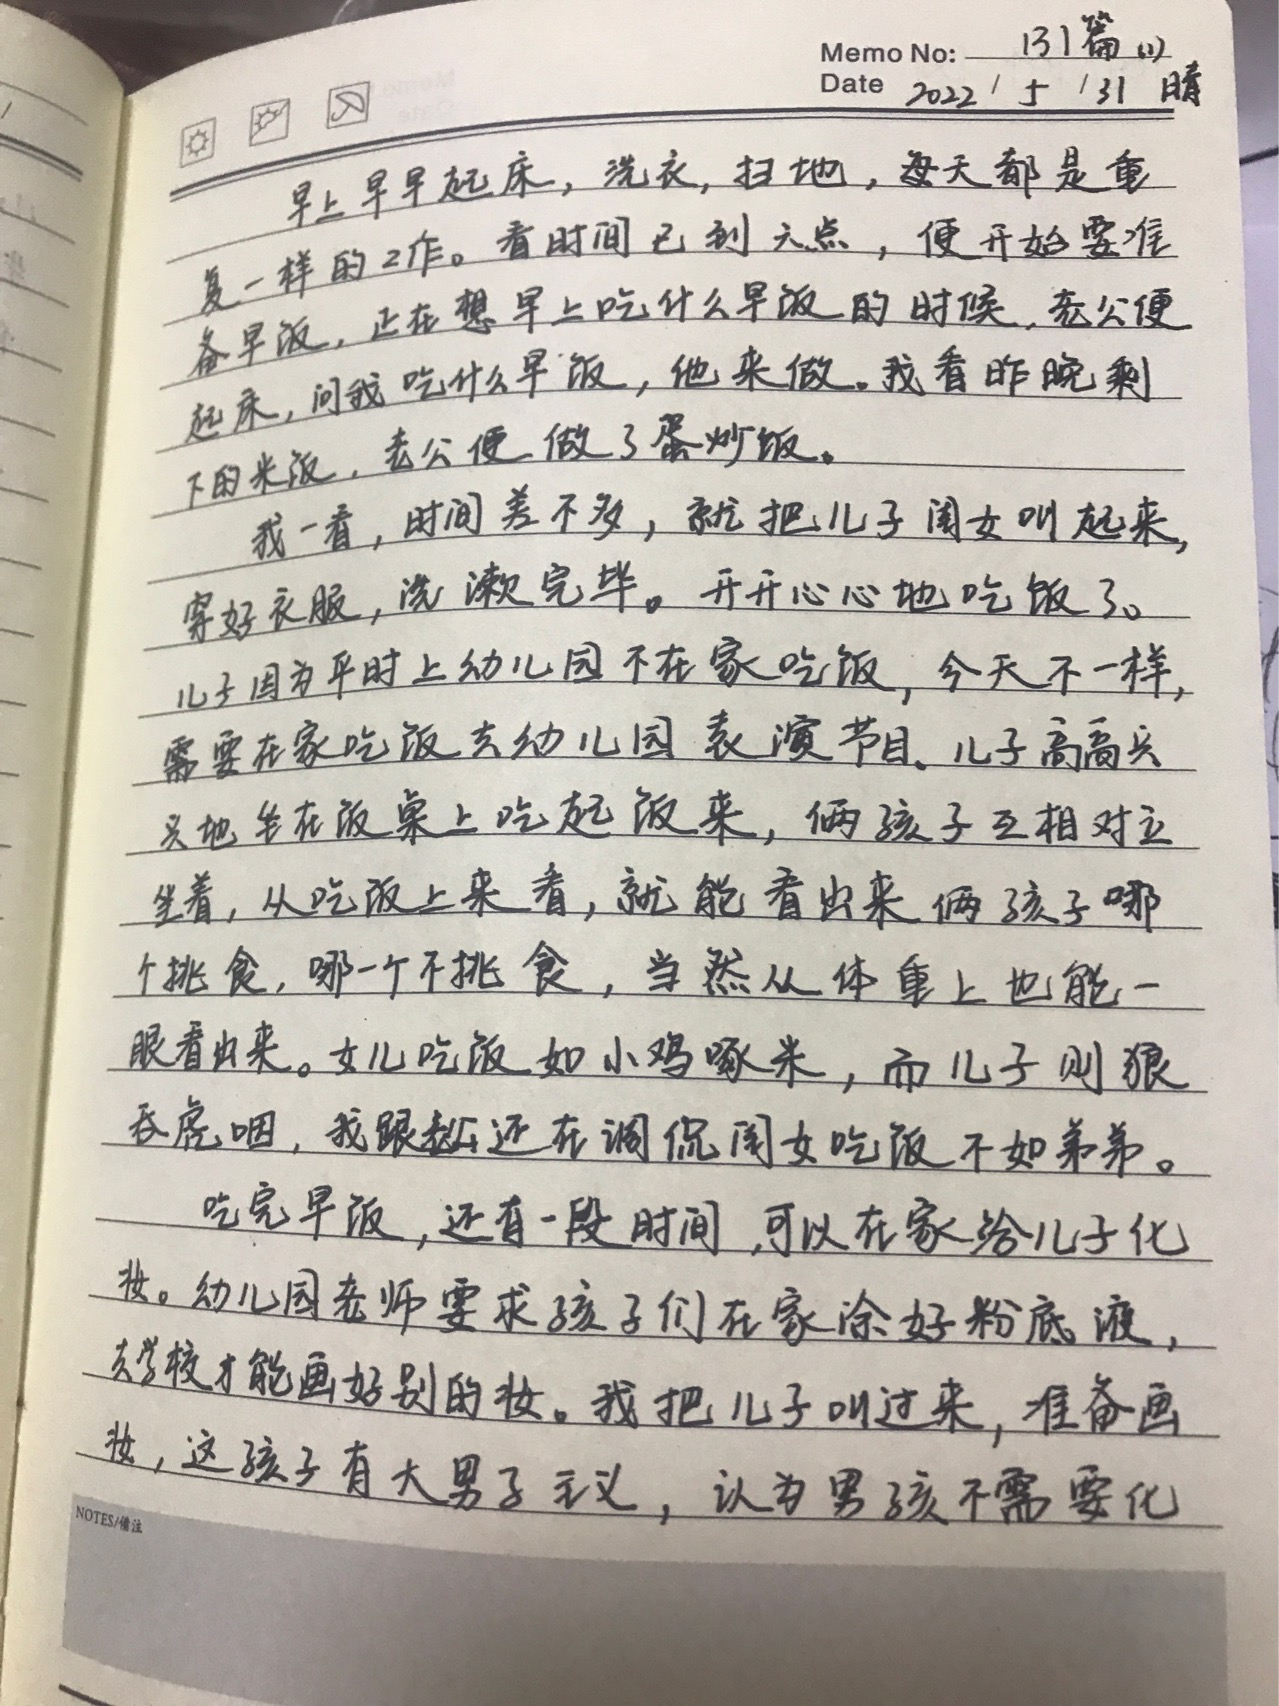 Memo No: 131篇(1)
Date 2022/5/31 晴
早上早早起床，洗衣，扫地，每天都是重
复一样的工作。看时间已到六点，便开始要准
备早饭，正在想早上吃什么早饭的时候，老公便
起床，问我吃什么早饭，他来做。我看昨晚剩
下的米饭，老公便做了蛋炒饭。
我一看，时间差不多，就把儿子闺女叫起来，
穿好衣服，洗漱完毕。开开心心地吃饭了。
儿子因为平时上幼儿园不在家吃饭，今天不一样，
需要在家吃饭去幼儿园表演节目。儿子高高兴
兴地坐在饭桌上吃起饭来，俩孩子互相对立
坐着，从吃饭上来看，就能看出来俩孩子哪
个挑食，哪一个不挑食，当然从体重上也能一
眼看出来。女儿吃饭如小鸡啄米，而儿子则狼
吞虎咽，我跟老公还在调侃闺女吃饭不如弟弟。
吃完早饭，还有一段时间，可以在家给儿子化
妆。幼儿园老师要求孩子们在家涂好粉底液，
去学校才能画好别的妆。我把儿子叫过来，准备画
妆，这孩子有大男子主义，认为男孩不需要化
NOTES/备注